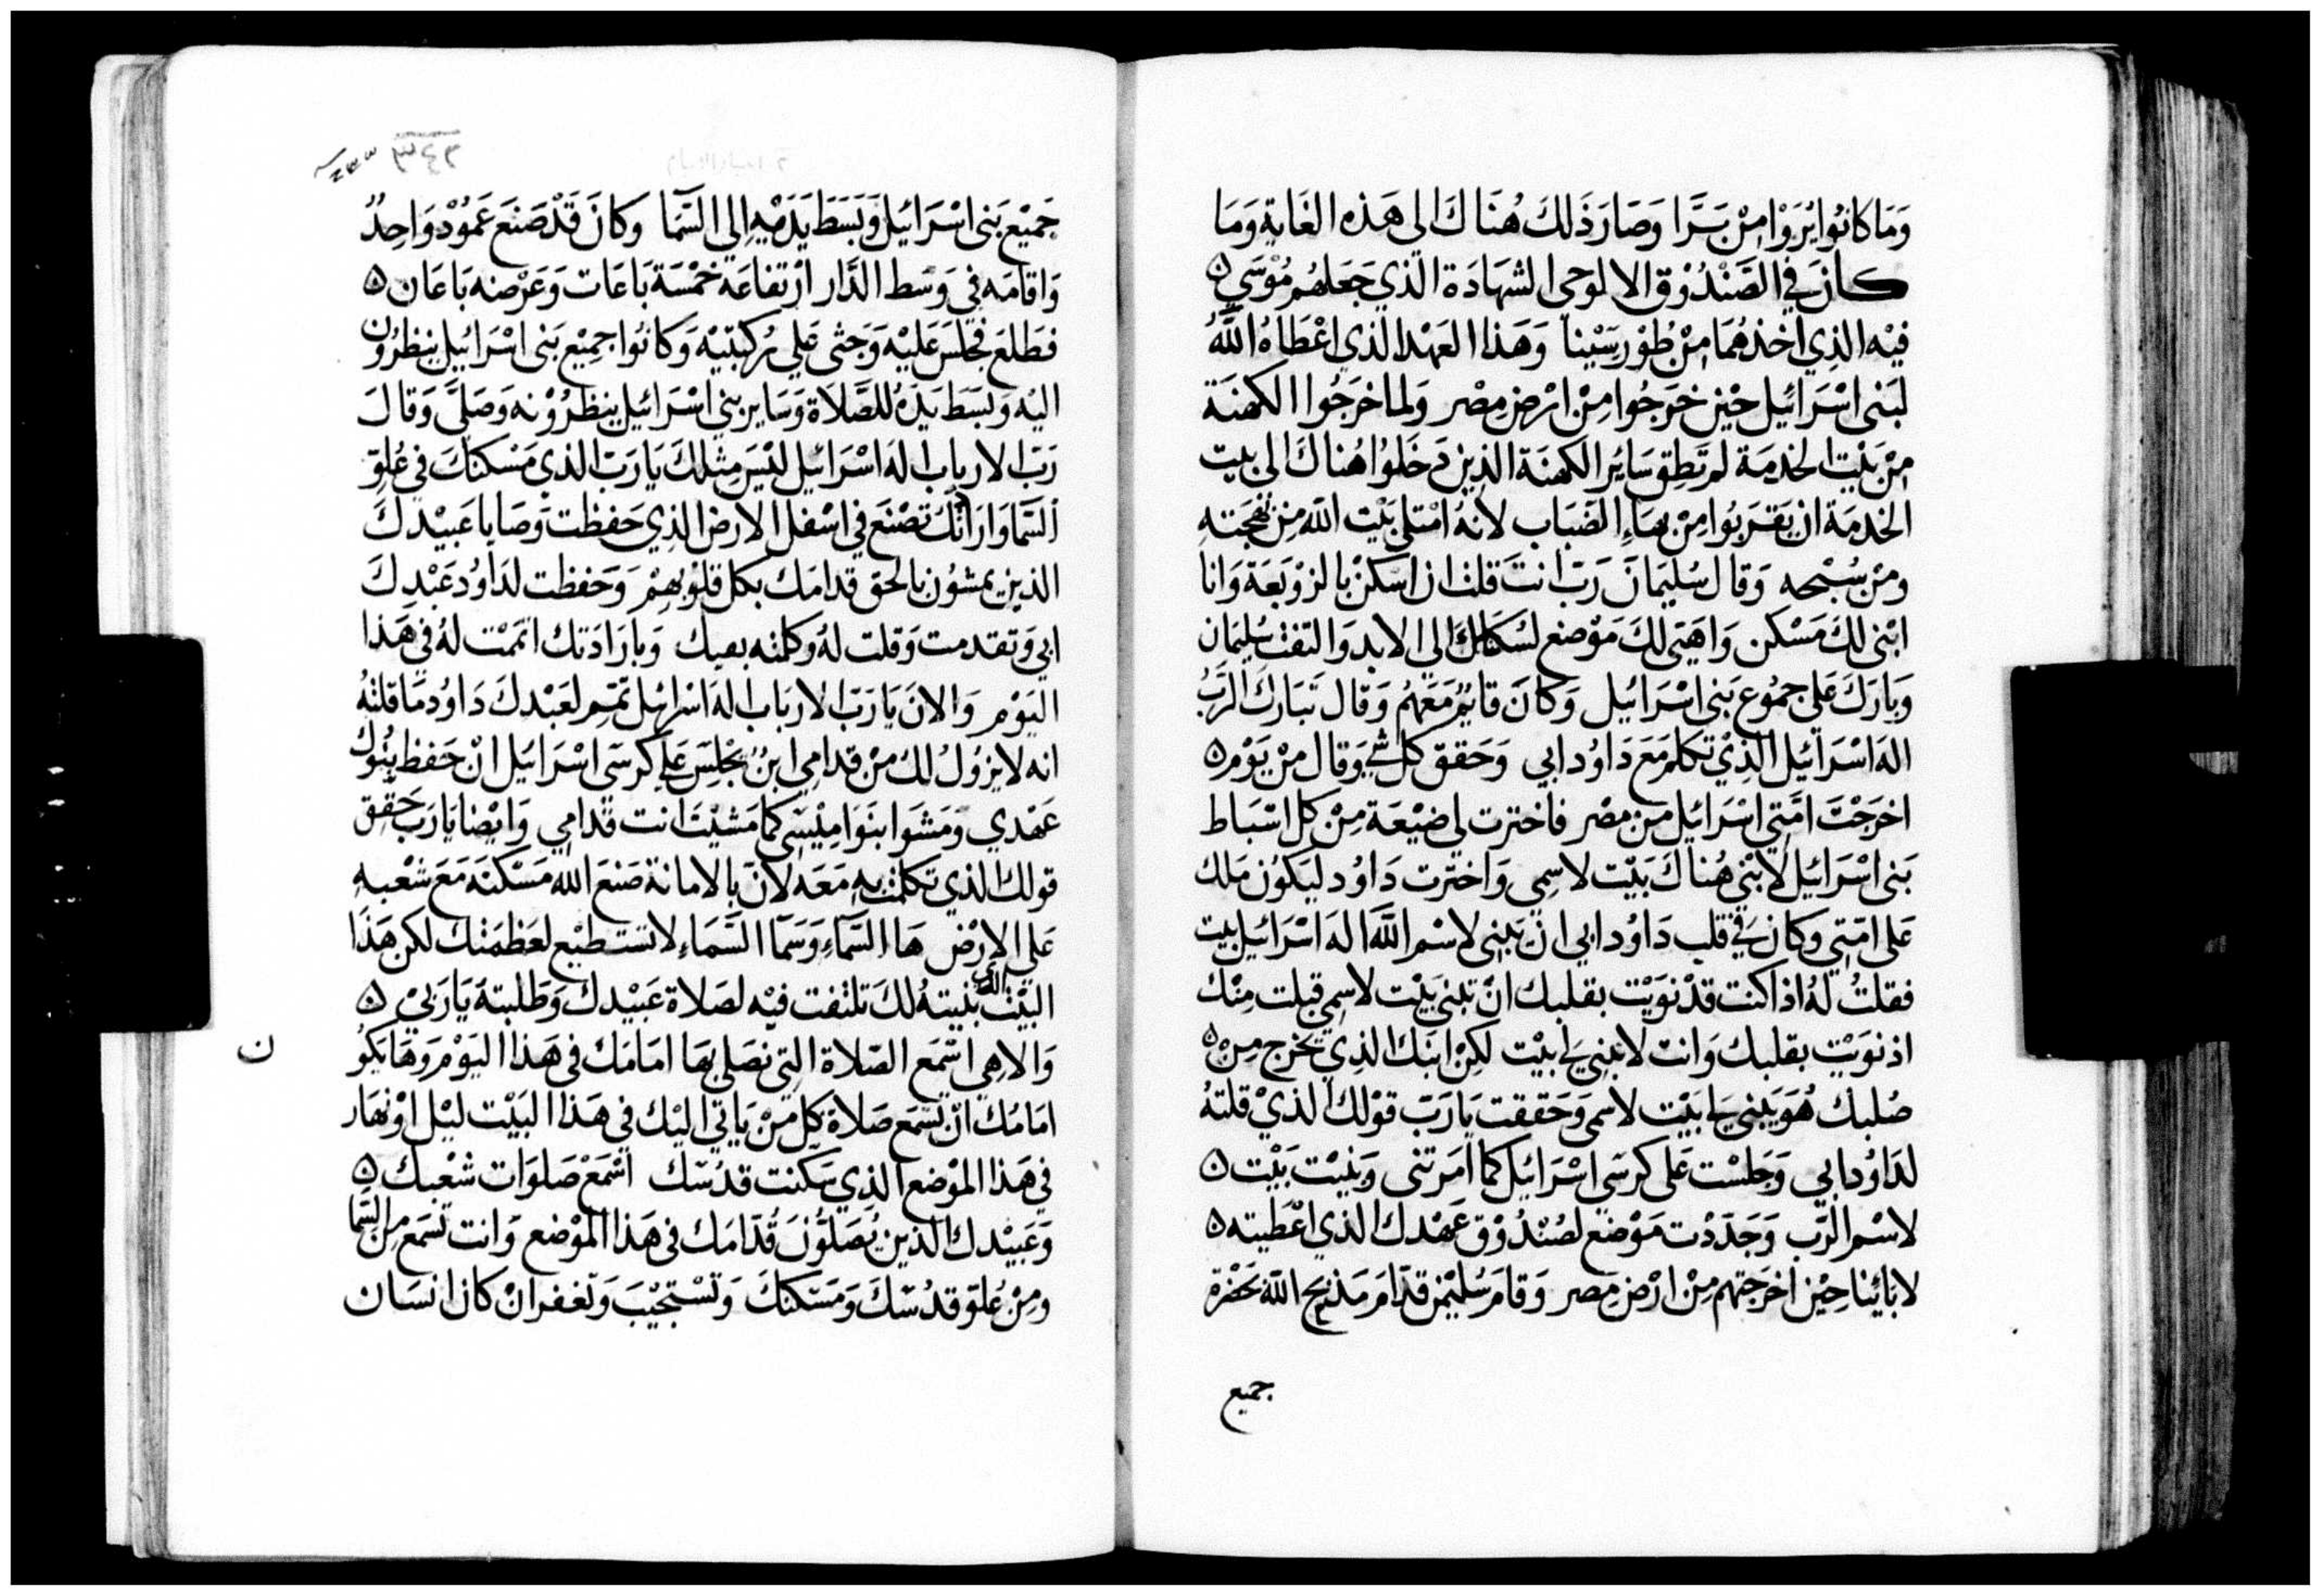 وَمَا كانُوا يُرَوْا مِنْ بَرَّا وَصَارَ ذَلكَ هُنَاكَ الى هَذه الغَايةِ وَمَا
كانَ في الصَّنْدُوْق الا لوحى الشهَادَة الذي جَعَلهُم مُوْسَي ۞
فيْه الذِي اخذهُمَا مِنْ طُوْر سَيْنا وَهَذا العَهْد الذي اعْطاهُ اللَّهُ
لبَنى اسْرَائيل حيْن خَرَجُوا مِنْ ارْض مِصْر وَلما خرَجُوا الكهنَة
مِنْ بَيْت الخدمَة لم تَطِق سَائر الكهنَة الذين دَخَلوُا هُناكَ الى بيت
الخدمَة ان يَقرَبُوا مِنْ بهَاءِ الضّبَاب لانهُ امْتلى بَيْت اللّه مِنْ بَهجَتهِ
ومنْ سُبْحه وَقال سُليمَانَ رَبّ انتَ قلت ان اسكنْ بالزوْبَعَة وَانا
ابْنى لكَ مَسْكن وَاهَيى لكَ مَوْضع لسُكناك الي الابد وَالتفت سُليمَان
وَبارَكَ عَلى جمُوع بَنى اسْرَائيل وَكانَ قايُم مَعَهُم وَقال تَبَارَك الرَّبُ
الهَ اسْرَائيل الذِيْ تكلم مَعَ دَاوُد ابي وَحَقق كل شي وَقال مِنْ يَوْم ۞
اخرَجْتَ امّتي اسْرَائيل من مصْر فاخترت لي ضيْعَة مِنْ كل اسْبَاط
بَنى اسْرَائيل لابْني هُناكَ بَيْت لاسِمي وَاخترت دَاوُد ليَكوُن مَلك
عَلى امّتي وَكانَ في قلب دَاوُد ابي ان يَبني لاسْم اللَّه الهَ اسْرَائيل بيت
فقلتُ لهُ اذا كنت قدْ نوَيْت بقلبك انْ تبنى بَيْت لاسمِي قبلت مِنْك
اذ نوَيْت بقلبك وَانت لا تبني لي بيْت لكِنْ ابنَك الذِي يخرج مِنْ ۞
صُلبك هُوَ يَبني لي بَيْت لاسمى وَحَققت يَا رَبّ قوْلك الذيْ قلتهُ
لدَاوُد ابي وَجَلسْت عَلى كرسَي اسْرَائيل كما امَرتنى وَبَنيْت بَيْت ۞
لاسْم الرَّب وَجَدّدْت مَوْضع لصُنْدُوْق عَهْدك الذي اعْطيته ۞
لابَائينا حِيْن اخرَجتهم مِنْ ارْض مِصر وَقامَ سُليْمن قدّام مَذبَح اللّه بحَضرة
جميع
٣٤٢
جَميْع بَنى اسْرَائيل وَبَسَط يَدَيْهِ الي السَّمَا وكانَ قَدْ صَنعَ عَمُوْد وَاحِدُ
وَاقامَه في وَسَط الدَّار ارْتفاعَهُ خمْسَة بَاعَات وَعَرْضه بَاعَان ۞
فطَلعَ فجَلسَ عَليْه وَجَثى عَلي رُكبتيْه وَكانُوا جمِيْع بَنى اسْرَائيل ينظرُون
اليْه وَبَسَط يَدَهُ للصَّلاة وَسَاير بني اسْرَائيل ينظرُوْنه وَصَلىَّ وَقالَ
رَبّ الارباب الهَ اسْرَائيل لَيْسَ مِثلكَ يَا رَبّ الذي مَسْكنَكَ في عُلوّ
السَّمَا وَارَادَتَكَ تصْنَع في اسْفل الارض الذي حَفظت وَصَايا عَبيْدكَ
الذين يمشوُن بالحق قدامَك بكل قلوْبهِمْ وَحَفظت لدَاوُد عَبْدِكَ
ابي وَتقدمت وَقلت لهُ وكلمته بفيك وَبارَادَتك اتممْت لهُ في هَذا
اليَوْم وَالانَ يَا رَبّ الارَباب الهَ اسْرَائيل تَمِم لعَبْدكَ دَاوُد مَا قلتهُ
انه لا يزوُل لكَ مِنْ قدامِي ابنُ يجْلِسَ عَلي كرسَي اسْرَائيل انْ حَفظ بنُوك
عَهْدي وَمَشوا بنَوامِيْسي كما مَشيْتَ انت قُدامِي وَايْضا يا رَب حَقِق
قولك الذي تكلمت به مَعَه لانَ بالامانة صَنعَ اللّه مَسْكنَه مَع شعْبهِ
عَلي الارْض هَا السَّمآءِ وَسَمَآ السَّمَاءِ لا تستطيْع لعَظمَتك لكن هَذَا
البَيْت الذي بنيتهُ لكَ تلتفت فيْه لصَلاة عَبيْدكَ وَطَلبتهَ يَا رَبيْ ۞
وَالاهِي اسْمَع الصّلاة التِي نصَلي بهَا امَامَك في هَذا اليَوْم وَهَا يَكوُ
ن
امَامُك انْ تسْمَع صَلاة كل مَنْ يَاتي اليْك في هَذا البَيْت ليْل اوْ نهَار
في هَذا الموْضع الذِي سَكنت قدُسّك اسْمَعْ صَلوَات شعْبك ۞
وَعَبيْدك الذين يُصَلوُّنَ قُدّامَك فى هَذا الموْضع وَانت تسْمَع مِن السَّمَا
ومِنْ عُلوّ قدُسّكَ وَمَسَكنكَ وَتسْتجيْبَ وَتغفر انْ كانَ انسَان